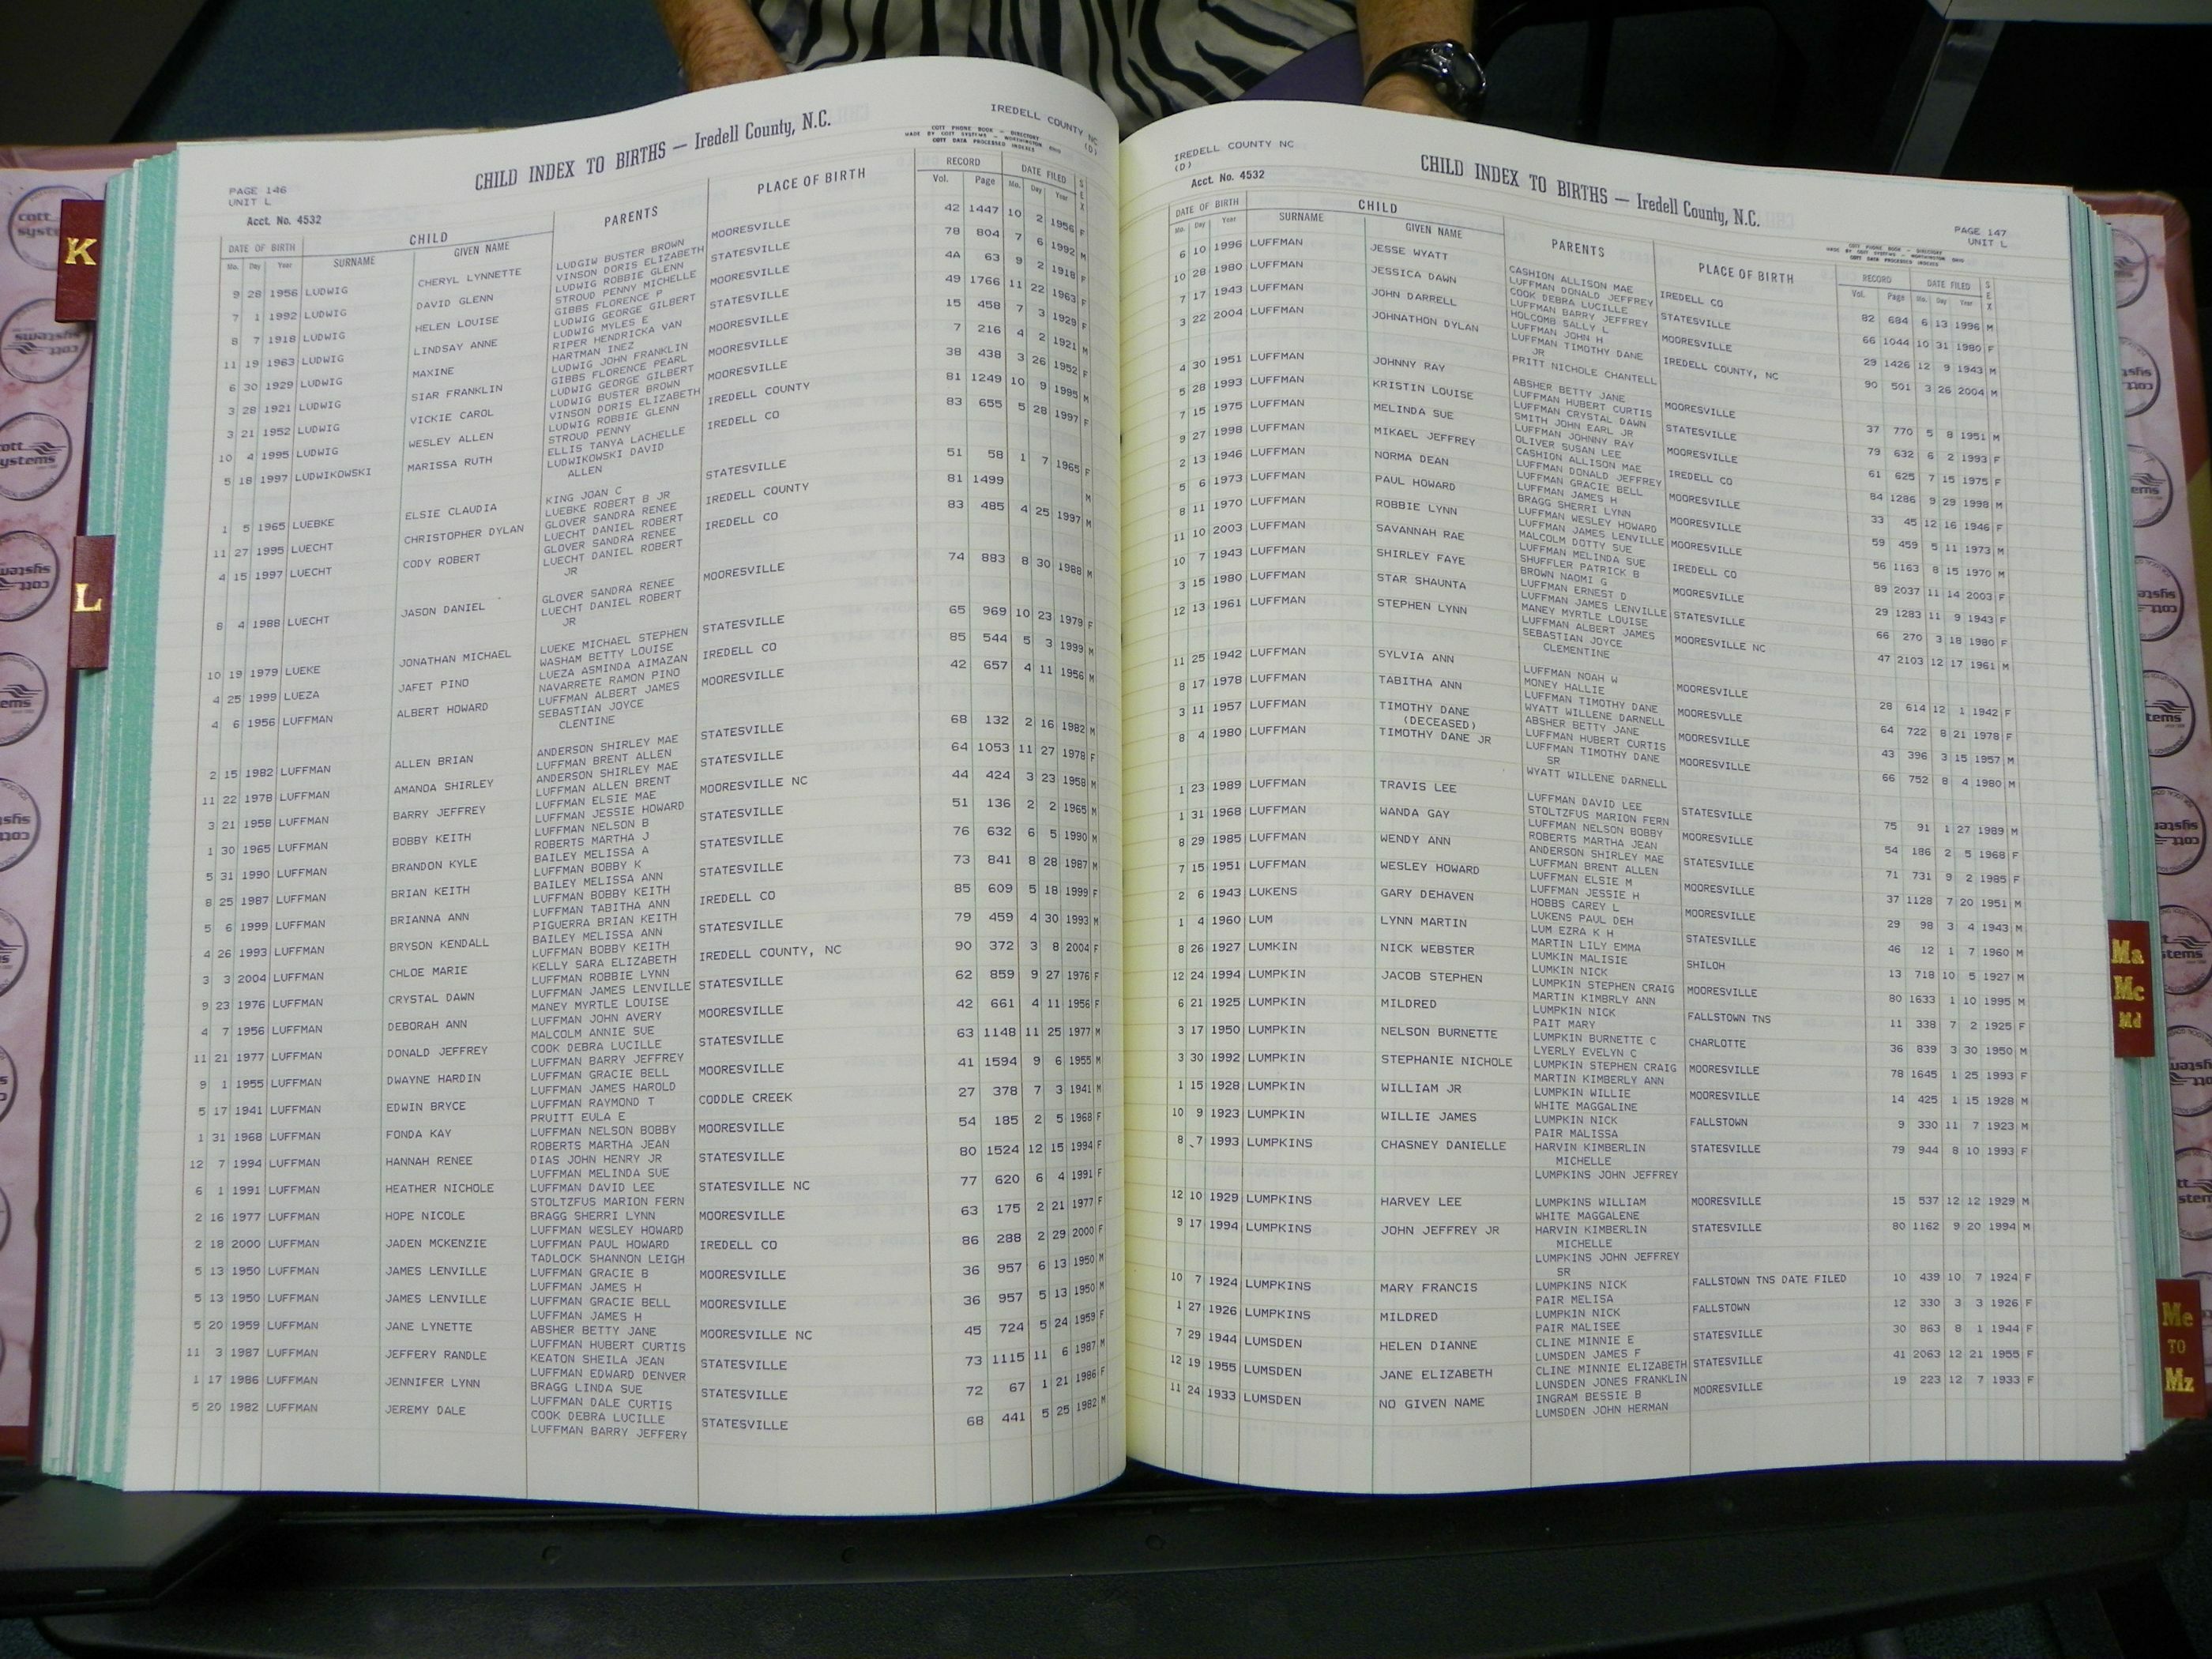 IREDELL COUNTY NC
(D)
CHILD INDEX TO BIRTHS — Iredell County, N.C.
COTT PHONE BOOK — DIRECTORY
MADE BY COTT SYSTEMS — WORTHINGTON OHIO
COTT DATA PROCESSED INDEXES
PAGE 146
UNIT L
Acct. No. 4532
DATE OF BIRTH CHILD PARENTS PLACE OF BIRTH RECORD DATE FILED SEX
Mo. Day Year SURNAME GIVEN NAME Vol. Page Mo. Day Year
9 28 1956 LUDWIG CHERYL LYNNETTE LUDGIW BUSTER BROWN MOORESVILLE 42 1447 10 2 1956 F
VINSON DORIS ELIZABETH
7 1 1992 LUDWIG DAVID GLENN LUDWIG ROBBIE GLENN STATESVILLE 78 804 7 6 1992 M
STROUD PENNY MICHELLE
8 7 1918 LUDWIG HELEN LOUISE GIBBS FLORENCE P MOORESVILLE 4A 63 9 2 1918 F
LUDWIG GEORGE GILBERT
11 19 1963 LUDWIG LINDSAY ANNE LUDWIG MYLES E STATESVILLE 49 1766 11 22 1963 F
RIPER HENDRICKA VAN
6 30 1929 LUDWIG MAXINE HARTMAN INEZ MOORESVILLE 15 458 7 3 1929 F
LUDWIG JOHN FRANKLIN
3 28 1921 LUDWIG SIAR FRANKLIN GIBBS FLORENCE PEARL MOORESVILLE 7 216 4 2 1921 M
LUDWIG GEORGE GILBERT
3 21 1952 LUDWIG VICKIE CAROL LUDWIG BUSTER BROWN MOORESVILLE 38 438 3 26 1952 F
VINSON DORIS ELIZABETH
10 4 1995 LUDWIG WESLEY ALLEN LUDWIG ROBBIE GLENN IREDELL COUNTY 81 1249 10 9 1995 M
STROUD PENNY
5 18 1997 LUDWIKOWSKI MARISSA RUTH ELLIS TANYA LACHELLE IREDELL CO 83 655 5 28 1997 F
LUDWIKOWSKI DAVID
ALLEN
1 5 1965 LUEBKE ELSIE CLAUDIA KING JOAN C STATESVILLE 51 58 1 7 1965 F
LUEBKE ROBERT B JR
11 27 1995 LUECHT CHRISTOPHER DYLAN GLOVER SANDRA RENEE IREDELL COUNTY 81 1499 M
LUECHT DANIEL ROBERT
4 15 1997 LUECHT CODY ROBERT GLOVER SANDRA RENEE IREDELL CO 83 485 4 25 1997 M
LUECHT DANIEL ROBERT
JR
8 4 1988 LUECHT JASON DANIEL GLOVER SANDRA RENEE MOORESVILLE 74 883 8 30 1988 M
LUECHT DANIEL ROBERT
JR
10 19 1979 LUEKE JONATHAN MICHAEL LUEKE MICHAEL STEPHEN STATESVILLE 65 969 10 23 1979 F
WASHAM BETTY LOUISE
4 25 1999 LUEZA JAFET PINO LUEZA ASMINDA AIMAZAN IREDELL CO 85 544 5 3 1999 M
NAVARRETE RAMON PINO
4 6 1956 LUFFMAN ALBERT HOWARD LUFFMAN ALBERT JAMES MOORESVILLE 42 657 4 11 1956 M
SEBASTIAN JOYCE
CLENTINE
2 15 1982 LUFFMAN ALLEN BRIAN ANDERSON SHIRLEY MAE STATESVILLE 68 132 2 16 1982 M
LUFFMAN BRENT ALLEN
11 22 1978 LUFFMAN AMANDA SHIRLEY ANDERSON SHIRLEY MAE STATESVILLE 64 1053 11 27 1978 F
LUFFMAN ALLEN BRENT
3 21 1958 LUFFMAN BARRY JEFFREY LUFFMAN ELSIE MAE MOORESVILLE NC 44 424 3 23 1958 M
LUFFMAN JESSIE HOWARD
1 30 1965 LUFFMAN BOBBY KEITH LUFFMAN NELSON B STATESVILLE 51 136 2 2 1965 M
ROBERTS MARTHA J
5 31 1990 LUFFMAN BRANDON KYLE BAILEY MELISSA A STATESVILLE 76 632 6 5 1990 M
LUFFMAN BOBBY K
8 25 1987 LUFFMAN BRIAN KEITH BAILEY MELISSA ANN STATESVILLE 73 841 8 28 1987 M
LUFFMAN BOBBY KEITH
5 6 1999 LUFFMAN BRIANNA ANN LUFFMAN TABITHA ANN IREDELL CO 85 609 5 18 1999 F
PIGUERRA BRIAN KEITH
4 26 1993 LUFFMAN BRYSON KENDALL BAILEY MELISSA ANN STATESVILLE 79 459 4 30 1993 M
LUFFMAN BOBBY KEITH
3 3 2004 LUFFMAN CHLOE MARIE KELLY SARA ELIZABETH IREDELL COUNTY, NC 90 372 3 8 2004 F
LUFFMAN ROBBIE LYNN
9 23 1976 LUFFMAN CRYSTAL DAWN LUFFMAN JAMES LENVILLE STATESVILLE 62 859 9 27 1976 F
MANEY MYRTLE LOUISE
4 7 1956 LUFFMAN DEBORAH ANN LUFFMAN JOHN AVERY MOORESVILLE 42 661 4 11 1956 F
MALCOLM ANNIE SUE
11 21 1977 LUFFMAN DONALD JEFFREY COOK DEBRA LUCILLE STATESVILLE 63 1148 11 25 1977 M
LUFFMAN BARRY JEFFREY
9 1 1955 LUFFMAN DWAYNE HARDIN LUFFMAN GRACIE BELL MOORESVILLE 41 1594 9 6 1955 M
LUFFMAN JAMES HAROLD
5 17 1941 LUFFMAN EDWIN BRYCE LUFFMAN RAYMOND T CODDLE CREEK 27 378 7 3 1941 M
PRUITT EULA E
1 31 1968 LUFFMAN FONDA KAY LUFFMAN NELSON BOBBY MOORESVILLE 54 185 2 5 1968 F
ROBERTS MARTHA JEAN
12 7 1994 LUFFMAN HANNAH RENEE DIAS JOHN HENRY JR STATESVILLE 80 1524 12 15 1994 F
LUFFMAN MELINDA SUE
6 1 1991 LUFFMAN HEATHER NICHOLE LUFFMAN DAVID LEE STATESVILLE NC 77 620 6 4 1991 F
STOLTZFUS MARION FERN
2 16 1977 LUFFMAN HOPE NICOLE BRAGG SHERRI LYNN MOORESVILLE 63 175 2 21 1977 F
LUFFMAN WESLEY HOWARD
2 18 2000 LUFFMAN JADEN MCKENZIE LUFFMAN PAUL HOWARD IREDELL CO 86 288 2 29 2000 F
TADLOCK SHANNON LEIGH
5 13 1950 LUFFMAN JAMES LENVILLE LUFFMAN GRACIE B MOORESVILLE 36 957 6 13 1950 M
LUFFMAN JAMES H
5 13 1950 LUFFMAN JAMES LENVILLE LUFFMAN GRACIE BELL MOORESVILLE 36 957 5 13 1950 M
LUFFMAN JAMES H
5 20 1959 LUFFMAN JANE LYNETTE ABSHER BETTY JANE MOORESVILLE NC 45 724 5 24 1959 F
LUFFMAN HUBERT CURTIS
11 3 1987 LUFFMAN JEFFERY RANDLE KEATON SHEILA JEAN STATESVILLE 73 1115 11 6 1987 M
LUFFMAN EDWARD DENVER
1 17 1986 LUFFMAN JENNIFER LYNN BRAGG LINDA SUE STATESVILLE 72 67 1 21 1986 F
LUFFMAN DALE CURTIS
5 20 1982 LUFFMAN JEREMY DALE COOK DEBRA LUCILLE STATESVILLE 68 441 5 25 1982 M
LUFFMAN BARRY JEFFERY
IREDELL COUNTY NC
(D)
CHILD INDEX TO BIRTHS — Iredell County, N.C.
Acct. No. 4532
PAGE 147
UNIT L
COTT PHONE BOOK — DIRECTORY
MADE BY COTT SYSTEMS — WORTHINGTON OHIO
COTT DATA PROCESSED INDEXES
DATE OF BIRTH CHILD PARENTS PLACE OF BIRTH RECORD DATE FILED SEX
Mo. Day Year SURNAME GIVEN NAME Vol. Page Mo. Day Year
6 10 1996 LUFFMAN JESSE WYATT CASHION ALLISON MAE IREDELL CO 82 684 6 13 1996 M
LUFFMAN DONALD JEFFREY
10 28 1980 LUFFMAN JESSICA DAWN COOK DEBRA LUCILLE STATESVILLE 66 1044 10 31 1980 F
LUFFMAN BARRY JEFFREY
7 17 1943 LUFFMAN JOHN DARRELL HOLCOMB SALLY L MOORESVILLE 29 1426 12 9 1943 M
LUFFMAN JOHN H
3 22 2004 LUFFMAN JOHNATHON DYLAN LUFFMAN TIMOTHY DANE IREDELL COUNTY, NC 90 501 3 26 2004 M
JR
PRITT NICHOLE CHANTELL
4 30 1951 LUFFMAN JOHNNY RAY ABSHER BETTY JANE MOORESVILLE 37 770 5 8 1951 M
LUFFMAN HUBERT CURTIS
5 28 1993 LUFFMAN KRISTIN LOUISE LUFFMAN CRYSTAL DAWN STATESVILLE 79 632 6 2 1993 F
SMITH JOHN EARL JR
7 15 1975 LUFFMAN MELINDA SUE LUFFMAN JOHNNY RAY MOORESVILLE 61 625 7 15 1975 F
OLIVER SUSAN LEE
9 27 1998 LUFFMAN MIKAEL JEFFREY CASHION ALLISON MAE IREDELL CO 84 1286 9 29 1998 M
LUFFMAN DONALD JEFFREY
2 13 1946 LUFFMAN NORMA DEAN LUFFMAN GRACIE BELL MOORESVILLE 33 45 12 16 1946 F
LUFFMAN JAMES H
5 6 1973 LUFFMAN PAUL HOWARD BRAGG SHERRI LYNN MOORESVILLE 59 459 5 11 1973 M
LUFFMAN WESLEY HOWARD
8 11 1970 LUFFMAN ROBBIE LYNN LUFFMAN JAMES LENVILLE MOORESVILLE 56 1163 8 15 1970 M
MALCOLM DOTTY SUE
11 10 2003 LUFFMAN SAVANNAH RAE LUFFMAN MELINDA SUE IREDELL CO 89 2037 11 14 2003 F
SHUFFLER PATRICK B
10 7 1943 LUFFMAN SHIRLEY FAYE BROWN NAOMI G MOORESVILLE 29 1283 11 9 1943 F
LUFFMAN ERNEST D
3 15 1980 LUFFMAN STAR SHAUNTA LUFFMAN JAMES LENVILLE STATESVILLE 66 270 3 18 1980 F
MANEY MYRTLE LOUISE
12 13 1961 LUFFMAN STEPHEN LYNN LUFFMAN ALBERT JAMES MOORESVILLE NC 47 2103 12 17 1961 M
SEBASTIAN JOYCE
CLEMENTINE
11 25 1942 LUFFMAN SYLVIA ANN LUFFMAN NOAH W MOORESVILLE 28 614 12 1 1942 F
MONEY HALLIE
8 17 1978 LUFFMAN TABITHA ANN LUFFMAN TIMOTHY DANE MOORESVLLE 64 722 8 21 1978 F
WYATT WILLENE DARNELL
3 11 1957 LUFFMAN TIMOTHY DANE ABSHER BETTY JANE MOORESVILLE 43 396 3 15 1957 M
(DECEASED) LUFFMAN HUBERT CURTIS
8 4 1980 LUFFMAN TIMOTHY DANE JR LUFFMAN TIMOTHY DANE MOORESVILLE 66 752 8 4 1980 M
SR
WYATT WILLENE DARNELL
1 23 1989 LUFFMAN TRAVIS LEE LUFFMAN DAVID LEE STATESVILLE 75 91 1 27 1989 M
STOLTZFUS MARION FERN
1 31 1968 LUFFMAN WANDA GAY LUFFMAN NELSON BOBBY MOORESVILLE 54 186 2 5 1968 F
ROBERTS MARTHA JEAN
8 29 1985 LUFFMAN WENDY ANN ANDERSON SHIRLEY MAE STATESVILLE 71 731 9 2 1985 F
LUFFMAN BRENT ALLEN
7 15 1951 LUFFMAN WESLEY HOWARD LUFFMAN ELSIE M MOORESVILLE 37 1128 7 20 1951 M
LUFFMAN JESSIE H
2 6 1943 LUKENS GARY DEHAVEN HOBBS CAREY L MOORESVILLE 29 98 3 4 1943 M
LUKENS PAUL DEH
1 4 1960 LUM LYNN MARTIN LUM EZRA K H STATESVILLE 46 12 1 7 1960 M
MARTIN LILY EMMA
8 26 1927 LUMKIN NICK WEBSTER LUMKIN MALISIE SHILOH 13 718 10 5 1927 M
LUMKIN NICK
12 24 1994 LUMPKIN JACOB STEPHEN LUMPKIN STEPHEN CRAIG MOORESVILLE 80 1633 1 10 1995 M
MARTIN KIMBRLY ANN
6 21 1925 LUMPKIN MILDRED LUMPKIN NICK FALLSTOWN TNS 11 338 7 2 1925 F
PAIT MARY
3 17 1950 LUMPKIN NELSON BURNETTE LUMPKIN BURNETTE C CHARLOTTE 36 839 3 30 1950 M
LYERLY EVELYN C
3 30 1992 LUMPKIN STEPHANIE NICHOLE LUMPKIN STEPHEN CRAIG MOORESVILLE 78 1645 1 25 1993 F
MARTIN KIMBERLY ANN
1 15 1928 LUMPKIN WILLIAM JR LUMPKIN WILLIE MOORESVILLE 14 425 1 15 1928 M
WHITE MAGGALINE
10 9 1923 LUMPKIN WILLIE JAMES LUMPKIN NICK FALLSTOWN 9 330 11 7 1923 M
PAIR MALISSA
8 7 1993 LUMPKINS CHASNEY DANIELLE HARVIN KIMBERLIN STATESVILLE 79 944 8 10 1993 F
MICHELLE
LUMPKINS JOHN JEFFREY
12 10 1929 LUMPKINS HARVEY LEE LUMPKINS WILLIAM MOORESVILLE 15 537 12 12 1929 M
WHITE MAGGALENE
9 17 1994 LUMPKINS JOHN JEFFREY JR HARVIN KIMBERLIN STATESVILLE 80 1162 9 20 1994 M
MICHELLE
LUMPKINS JOHN JEFFREY
SR
10 7 1924 LUMPKINS MARY FRANCIS LUMPKINS NICK FALLSTOWN TNS DATE FILED 10 439 10 7 1924 F
PAIR MELISA
1 27 1926 LUMPKINS MILDRED LUMPKIN NICK FALLSTOWN 12 330 3 3 1926 F
PAIR MALISEE
7 29 1944 LUMSDEN HELEN DIANNE CLINE MINNIE E STATESVILLE 30 863 8 1 1944 F
LUMSDEN JAMES F
12 19 1955 LUMSDEN JANE ELIZABETH CLINE MINNIE ELIZABETH STATESVILLE 41 2063 12 21 1955 F
LUNSDEN JONES FRANKLIN
11 24 1933 LUMSDEN NO GIVEN NAME INGRAM BESSIE B MOORESVILLE 19 223 12 7 1933 F
LUMSDEN JOHN HERMAN
K
L
Ma
Mc
Md
Me
TO
Mz
cott
systems